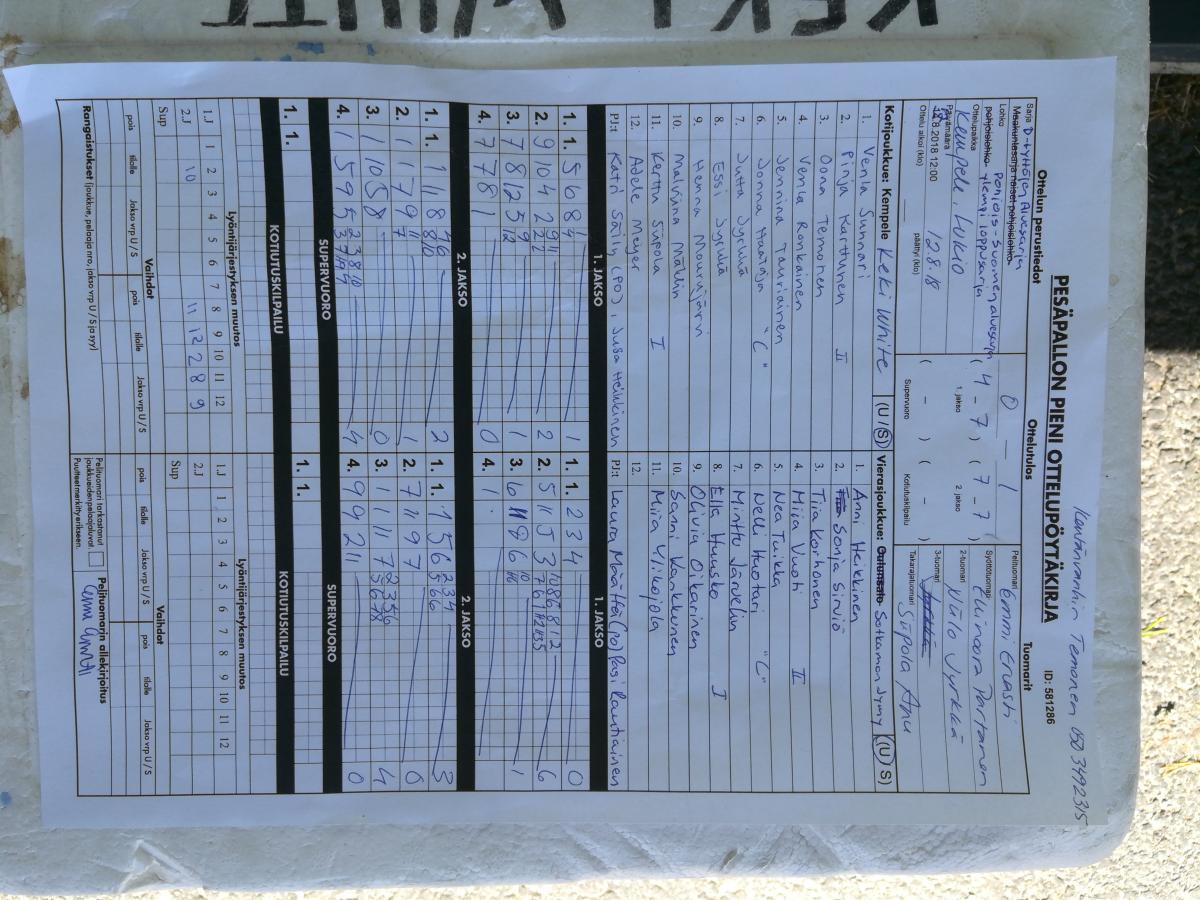 KEKI WHITE
Kentänvanhin Temonen 050 3492315
PESÄPALLON PIENI OTTELUPÖYTÄKIRJA
ID: 581286
Ottelun perustiedot
Ottelutulos
Tuomarit
Sarja D-tyttöjen Aluesarja
Maakuntasarja naiset pohjoislohko
Lohko Pohjois-Suomen aluesarja
pohjoislohko ylempi loppusarja
Ottelupaikka
Kempele, Lukio
Päivämäärä
.8.2018 12:00 12.8.18
Ottelu alkoi (klo) päättyi (klo)
0 - 1
( 4 - 7 ) ( 7 - 7 )
1. jakso 2. jakso
( - ) ( - )
Supervuoro Kotiutuskilpailu
Pelituomari
Emmi Ervasti
Syöttötuomari
Ellinoora Partanen
2-tuomari
Niilo Jyrkkä
3-tuomari
Takarajatuomari Siipola Anu
Kotijoukkue: Kempele Keki White (U / S)
1. Venla Sunnari
2. Pinja Karttunen II
3. Oona Temonen
4. Venla Ronkainen
5. Jennina Tauriainen
6. Jonna Haataja "C"
7. Jutta Jyrkkä
8. Essi Jyrkkä
9. Henna Mourujärvi
10. Malviina Mällin
11. Kerttu Siipola I
12. Adele Meyer
PJ:t Katri Säily (PO), Jussi Heikkinen
Vierasjoukkue: Oulunsalo Sotkamon Jymy (U / S)
1. Anni Heikkinen
2. Sonja Sirviö
3. Tiia Korhonen
4. Miia Vuoti II
5. Nea Tuikka
6. Nelli Huotari "C"
7. Minttu Järvelin
8. Ella Huusko I
9. Olivia Oikarinen
10. Sanni Karkkunen
11. Miia Ylikojola
12.
PJ:t Laura Määttä (po) Pasi Rautiainen
1. JAKSO 1. JAKSO
1. 1. 5 6 8 1 1. 1. 2 3 4 0
2. 9 10 4 2 2 2. 5 11 5 3 6
3. 7 8 12 5 1 3. 6 1
4. 7 7 8 1 0 4. 1
2. JAKSO 2. JAKSO
1. 1. 1 11 8 2 1. 1. 1 5 6 3
2. 1 1 7 9 1 2. 7 11 9 7 0
3. 1 10 5 8 0 3. 1 1 1 7 4
4. 1 5 9 5 4 4. 9 9 2 11 0
SUPERVUORO SUPERVUORO
1. 1. 1. 1.
KOTIUTUSKILPAILU KOTIUTUSKILPAILU
Lyöntijärjestyksen muutos Lyöntijärjestyksen muutos
1 2 3 4 5 6 7 8 9 10 11 12 1 2 3 4 5 6 7 8 9 10 11 12
1.J 1.J
2.J 10 11 12 2 8 9 2.J
Sup Sup
Vaihdot Vaihdot
pois tilalle Jakso vrp U / S pois tilalle Jakso vrp U / S pois tilalle Jakso vrp U / S pois tilalle Jakso vrp U / S
Rangaistukset (joukkue, pelaajanro, jakso vrp U / S ja syy)
Pelituomari tarkastanut
joukkueiden pelaajaluvat
Puutteet merkitty erikseen.
Pelituomarin allekirjoitus